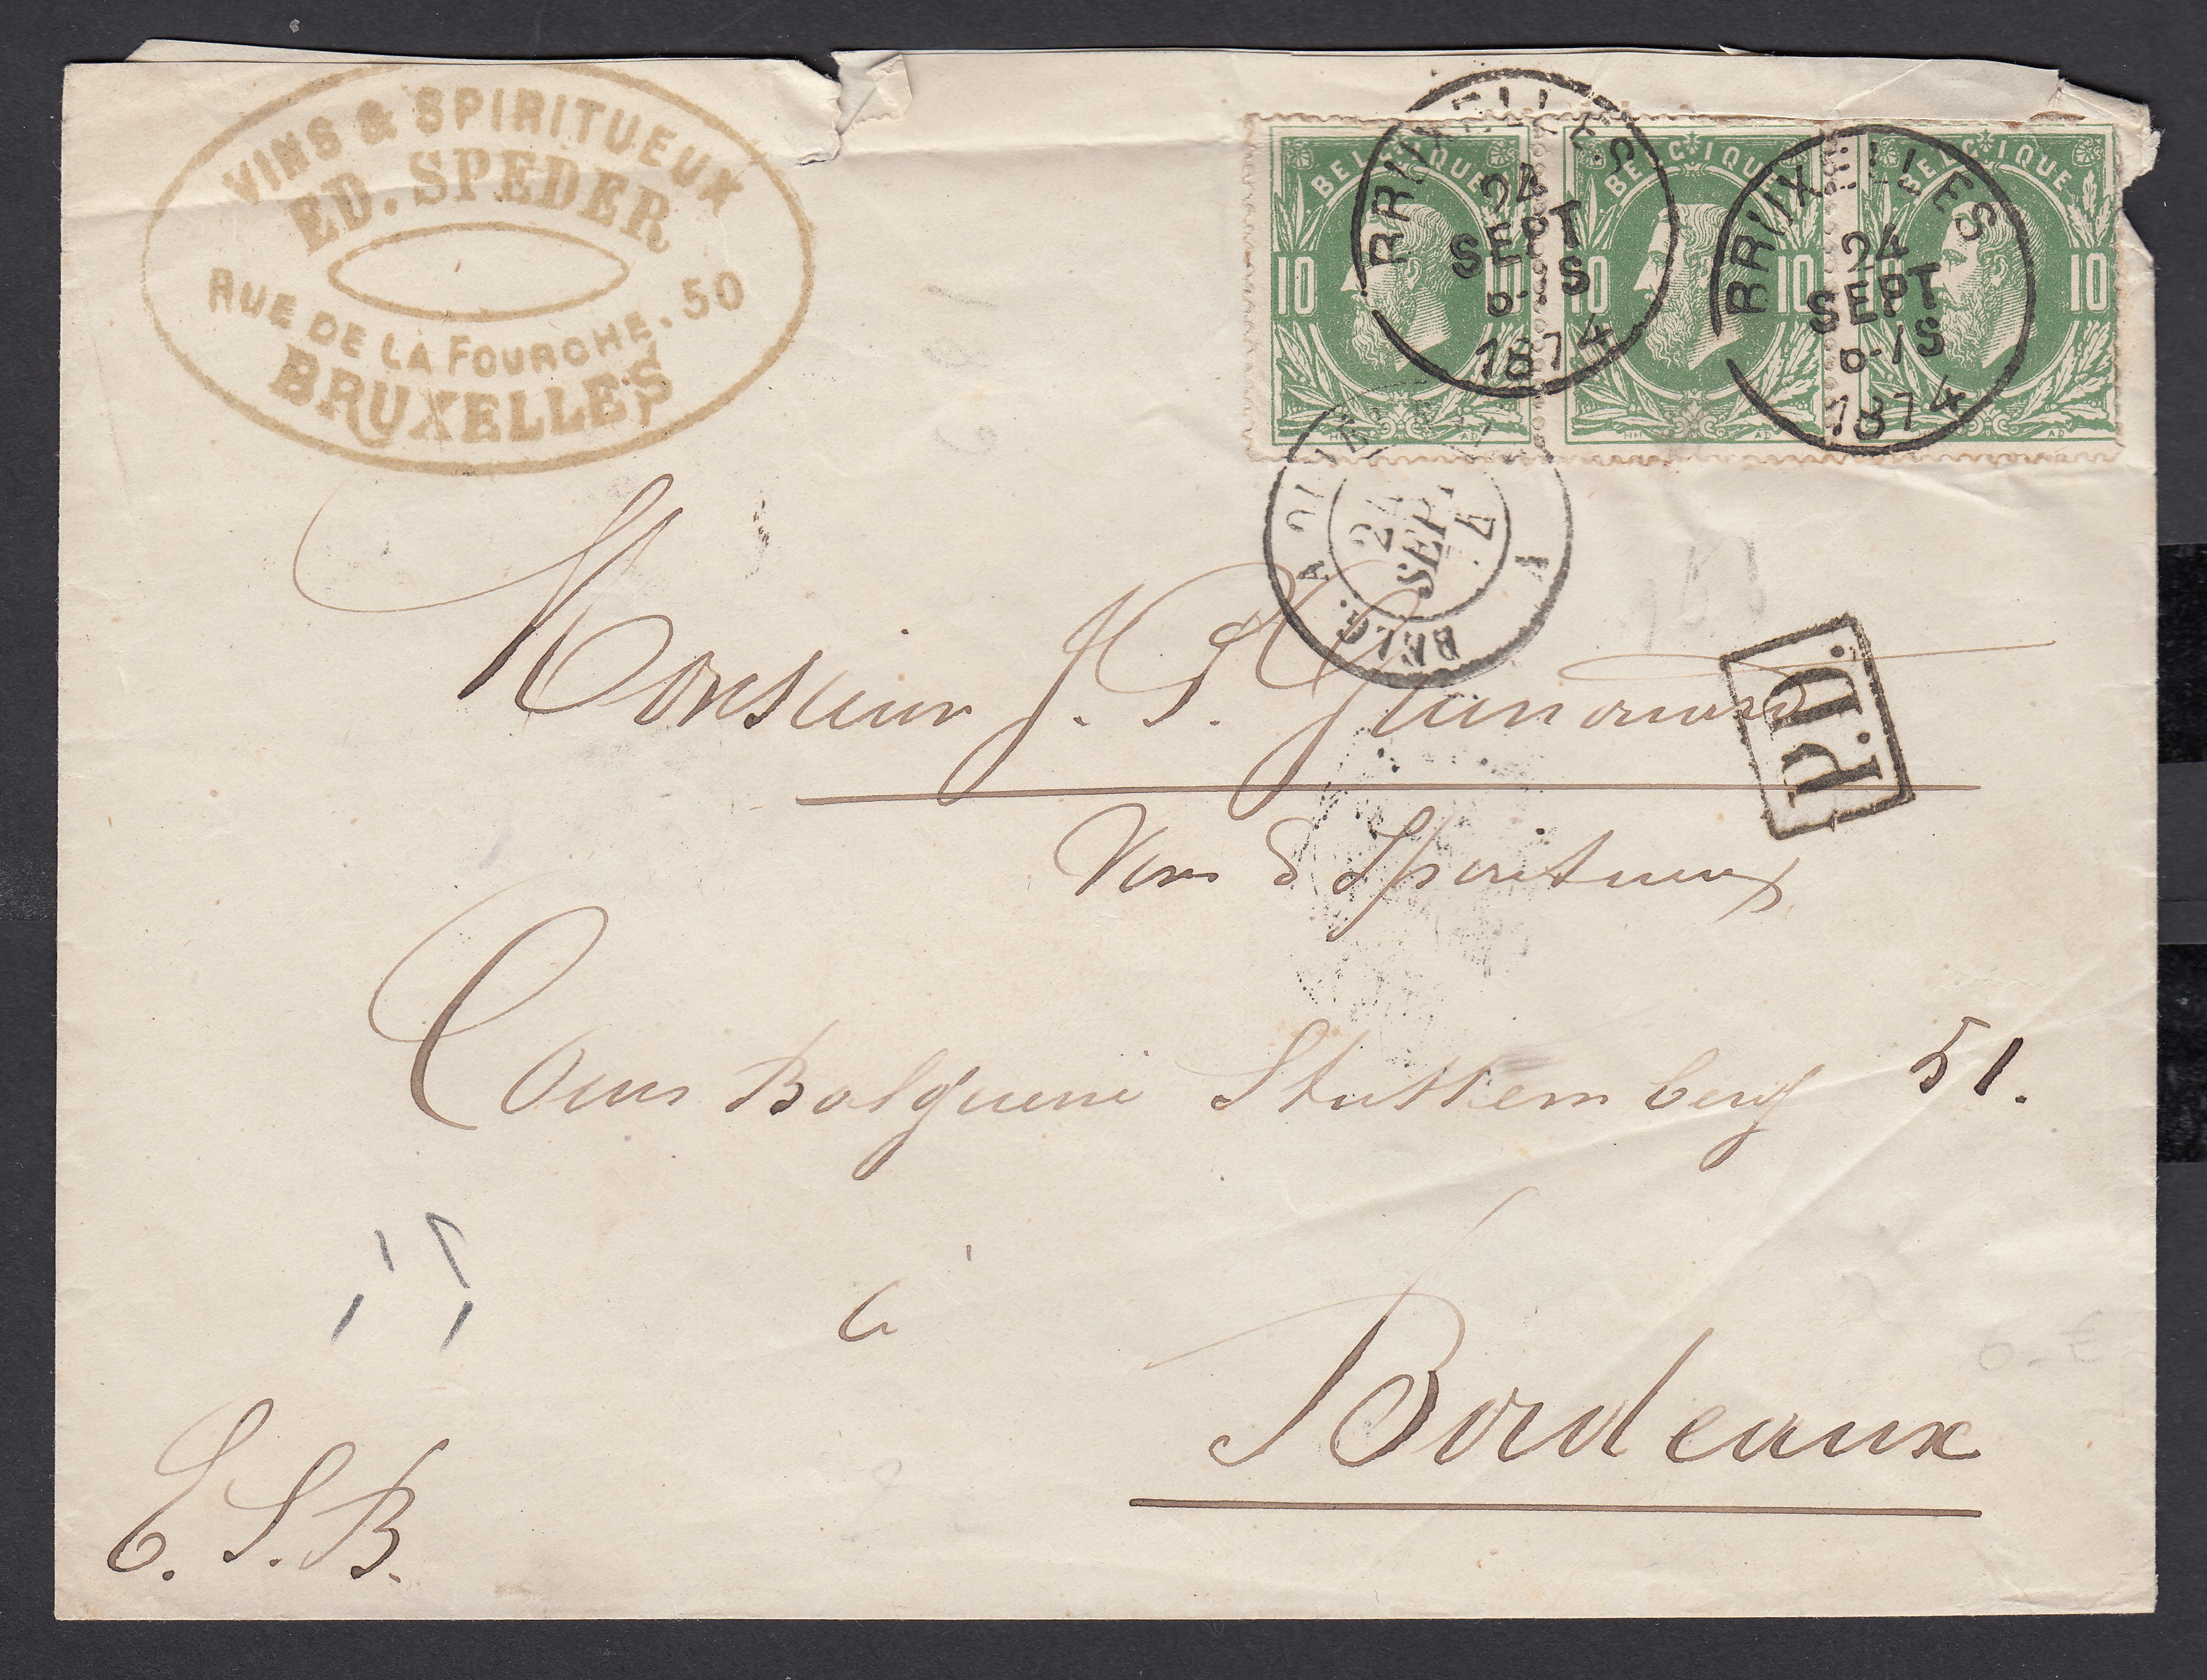 VINS & SPIRITUEUX
ED. SPEDER
RUE DE LA FOURCHE. 50
BRUXELLES
BELGIQUE
10 10
BELGIQUE
10 10
BELGIQUE
10
BRUXELLES
24
SEPT
6-S
1874
BRUXELLES
24
SEPT
6-1S
1874
BELG.
24
SEPT
74
A
P.D.
Monsieur J. P.
Vins & Spiritueux
Cours Balguerie Stuttemberg 51.
à
Bordeaux
E. S. B.